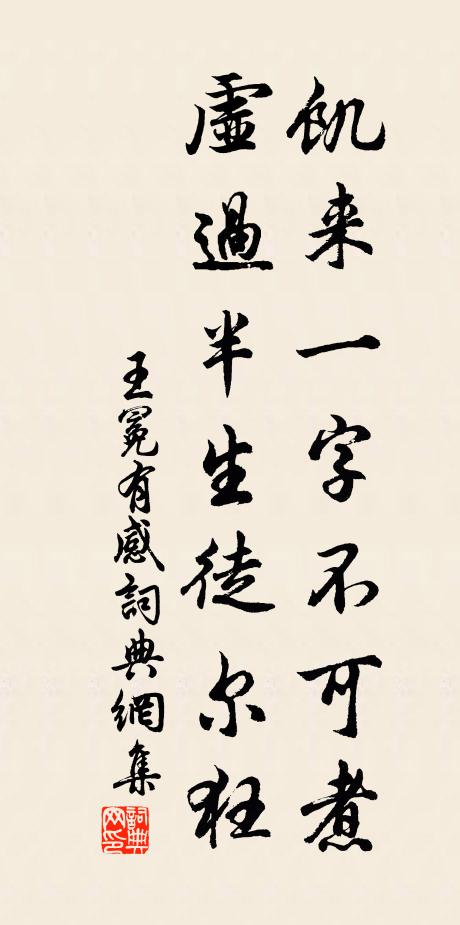 飢来一字不可煮
虛過半生徒尔狂
王冕有感詞典網集
詞典
网印